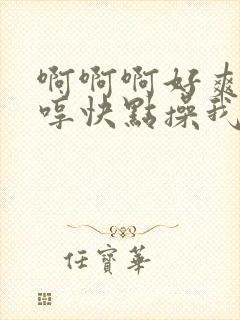 啊啊啊好爽
哼快點操我
任寶華